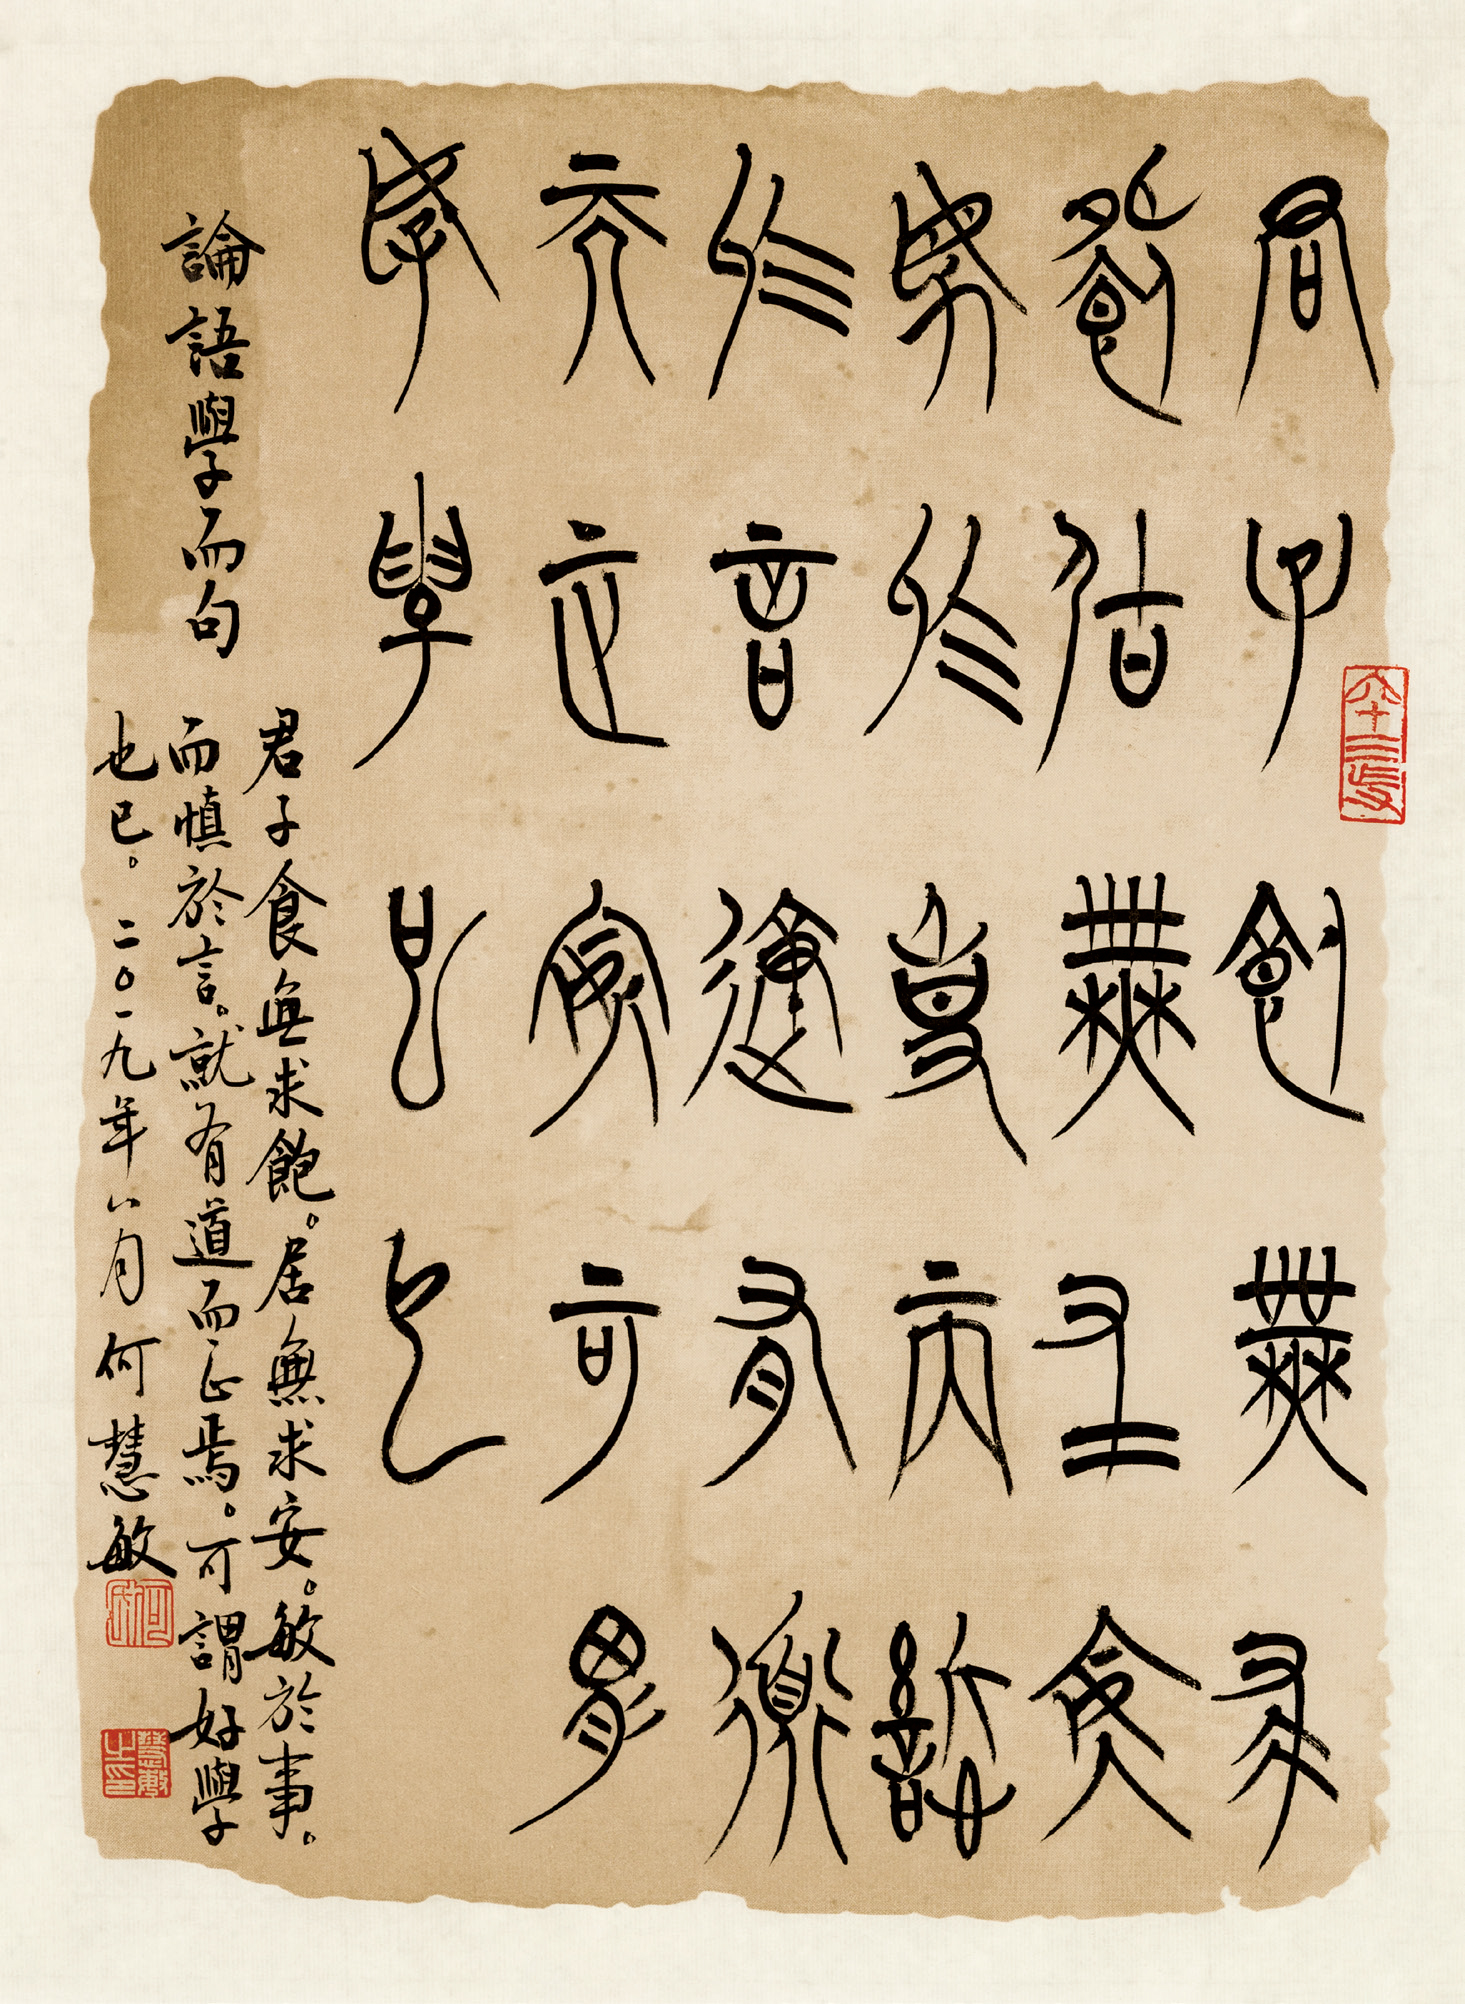 君子食無求
飽居無求安
敏於事而慎
於言就有道
而正焉可謂
好學也已
論語學而句
君子食無求飽。居無求安。敏於事。
而慎於言。就有道而正焉。可謂好學
也已。二〇一九年八月何慧敏
慧敏之印